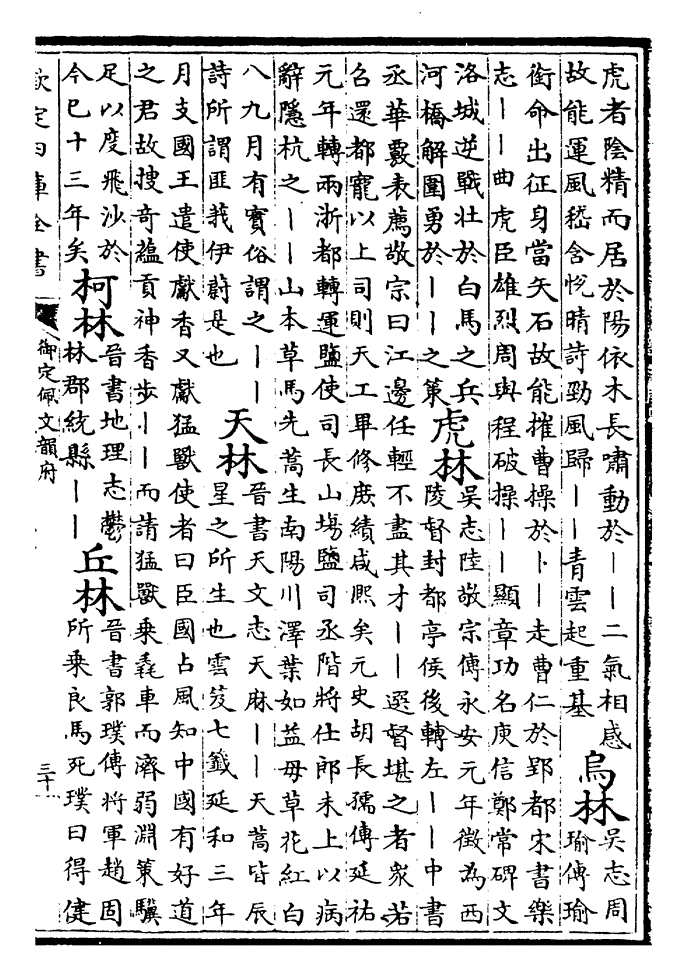 虎者陰精而居於陽依木長嘯動於丨丨二氣相感
故能運風嵇含悅晴詩勁風歸丨丨青雲起重基
烏林
吳志周
瑜傳瑜
銜命出征身當矢石故能摧曹操於丨丨走曹仁於郢都宋書樂
志丨丨曲虎臣雄烈周與程破操丨丨顯章功名庾信鄭常碑文
洛城逆戰壯於白馬之兵
河橋解圍勇於丨丨之策
虎林
吳志陸敬宗傳永安元年徵為西
陵督封都亭侯後轉左丨丨中書
丞華覈表薦敬宗曰江邊任輕不盡其才丨丨選督堪之者衆若
召還都寵以上司則天工畢修庶績咸熙矣元史胡長孺傳延祐
元年轉兩浙都轉運鹽使司長山場鹽司丞階將仕郎未上以病
辭隱杭之丨丨山本草馬先蒿生南陽川澤葉如益母草花紅白
八九月有實俗謂之丨丨
詩所謂匪莪伊蔚是也
天林
晉書天文志天麻丨丨天蒿皆辰
星之所生也雲笈七籤延和三年
月支國王遣使獻香又獻猛獸使者曰臣國占風知中國有好道
之君故搜奇蘊貢神香步丨丨而請猛獸乘毳車而濟弱淵策驥
足以度飛沙於
今已十三年矣
柯林
晉書地理志鬱
林郡統縣丨丨
丘林
晉書郭璞傳將軍趙固
所乘良馬死璞曰得健
欽定四庫全書
御定佩文韻府